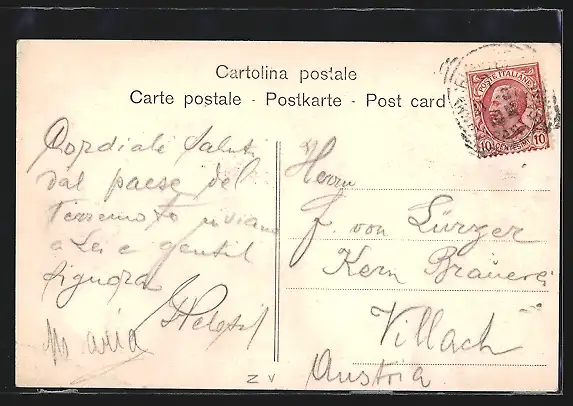 Cartolina postale
Carte postale - Postkarte - Post card
POSTE ITALIANE
10 CENTESIMI 10
Cordiali saluti
dal paese del
terremoto inviano
a Lei e gentil
Signora
Maria
Herrn
F. von Lürzer
Kern Brauerei
Villach
Austria
Z V